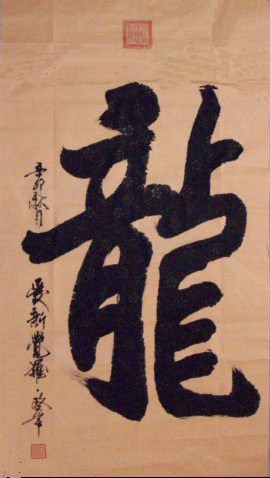 龍
辛卯秋月
愛新覺羅·啓笨